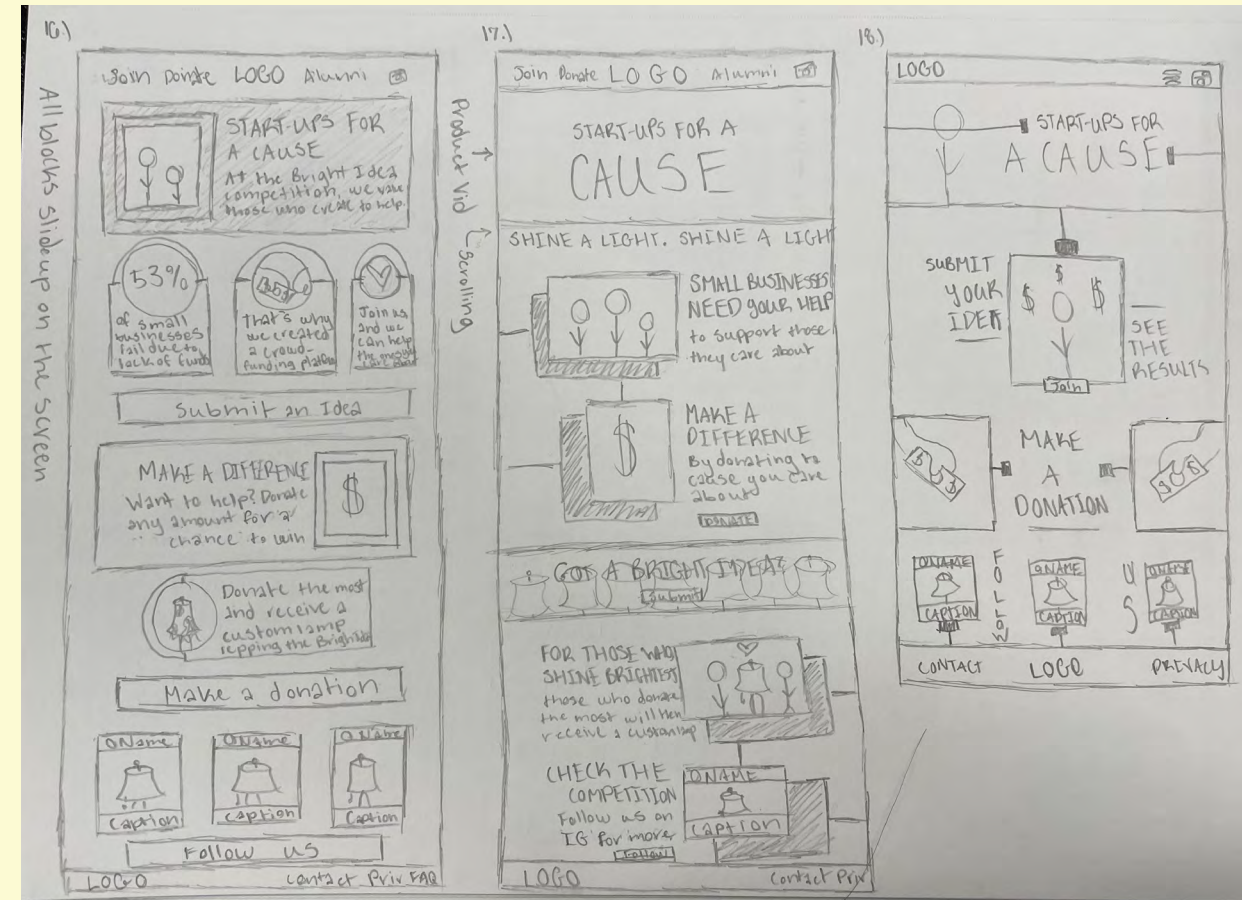 16.)
All blocks slide up on the screen
Join Donate LOGO Alumni
START-UPS FOR
A CAUSE
At the Bright Idea
competition, we value
those who create to help.
53%
of small
businesses
fail due to
lack of funds
That's why
we created
a crowd-
funding platform
Join us
and we
can help
Submit an Idea
MAKE A DIFFERENCE
Want to help? Donate
any amount for a
chance to win
$
Donate the most
and receive a
custom lamp
repping the
Make a donation
Name
Name
Name
Caption
Caption
Caption
Follow us
LOGO
Contact Priv FAQ
17.)
Product Vid
Scrolling
Join Donate LOGO Alumni
START-UPS FOR A
CAUSE
SHINE A LIGHT. SHINE A LIGH
SMALL BUSINESSES
NEED YOUR HELP
to support those
they care about
$
MAKE A
DIFFERENCE
By donating to
cause you care
about
DONATE
GOT A BRIGHT IDEA?
Submit
FOR THOSE WHO
SHINE BRIGHTEST
those who donate
the most will then
receive a custom lamp
CHECK THE
COMPETITION
Follow us on
IG for more
Follow
NAME
Caption
LOGO
Contact Priv
18.)
LOGO
START-UPS FOR
A CAUSE
SUBMIT
YOUR
IDEA
$
$ $
Join
SEE
THE
RESULTS
MAKE
A
DONATION
NAME
CAPTION
FOLLOW
NAME
CAPTION
US
NAME
CAPTION
CONTACT LOGO PRIVACY